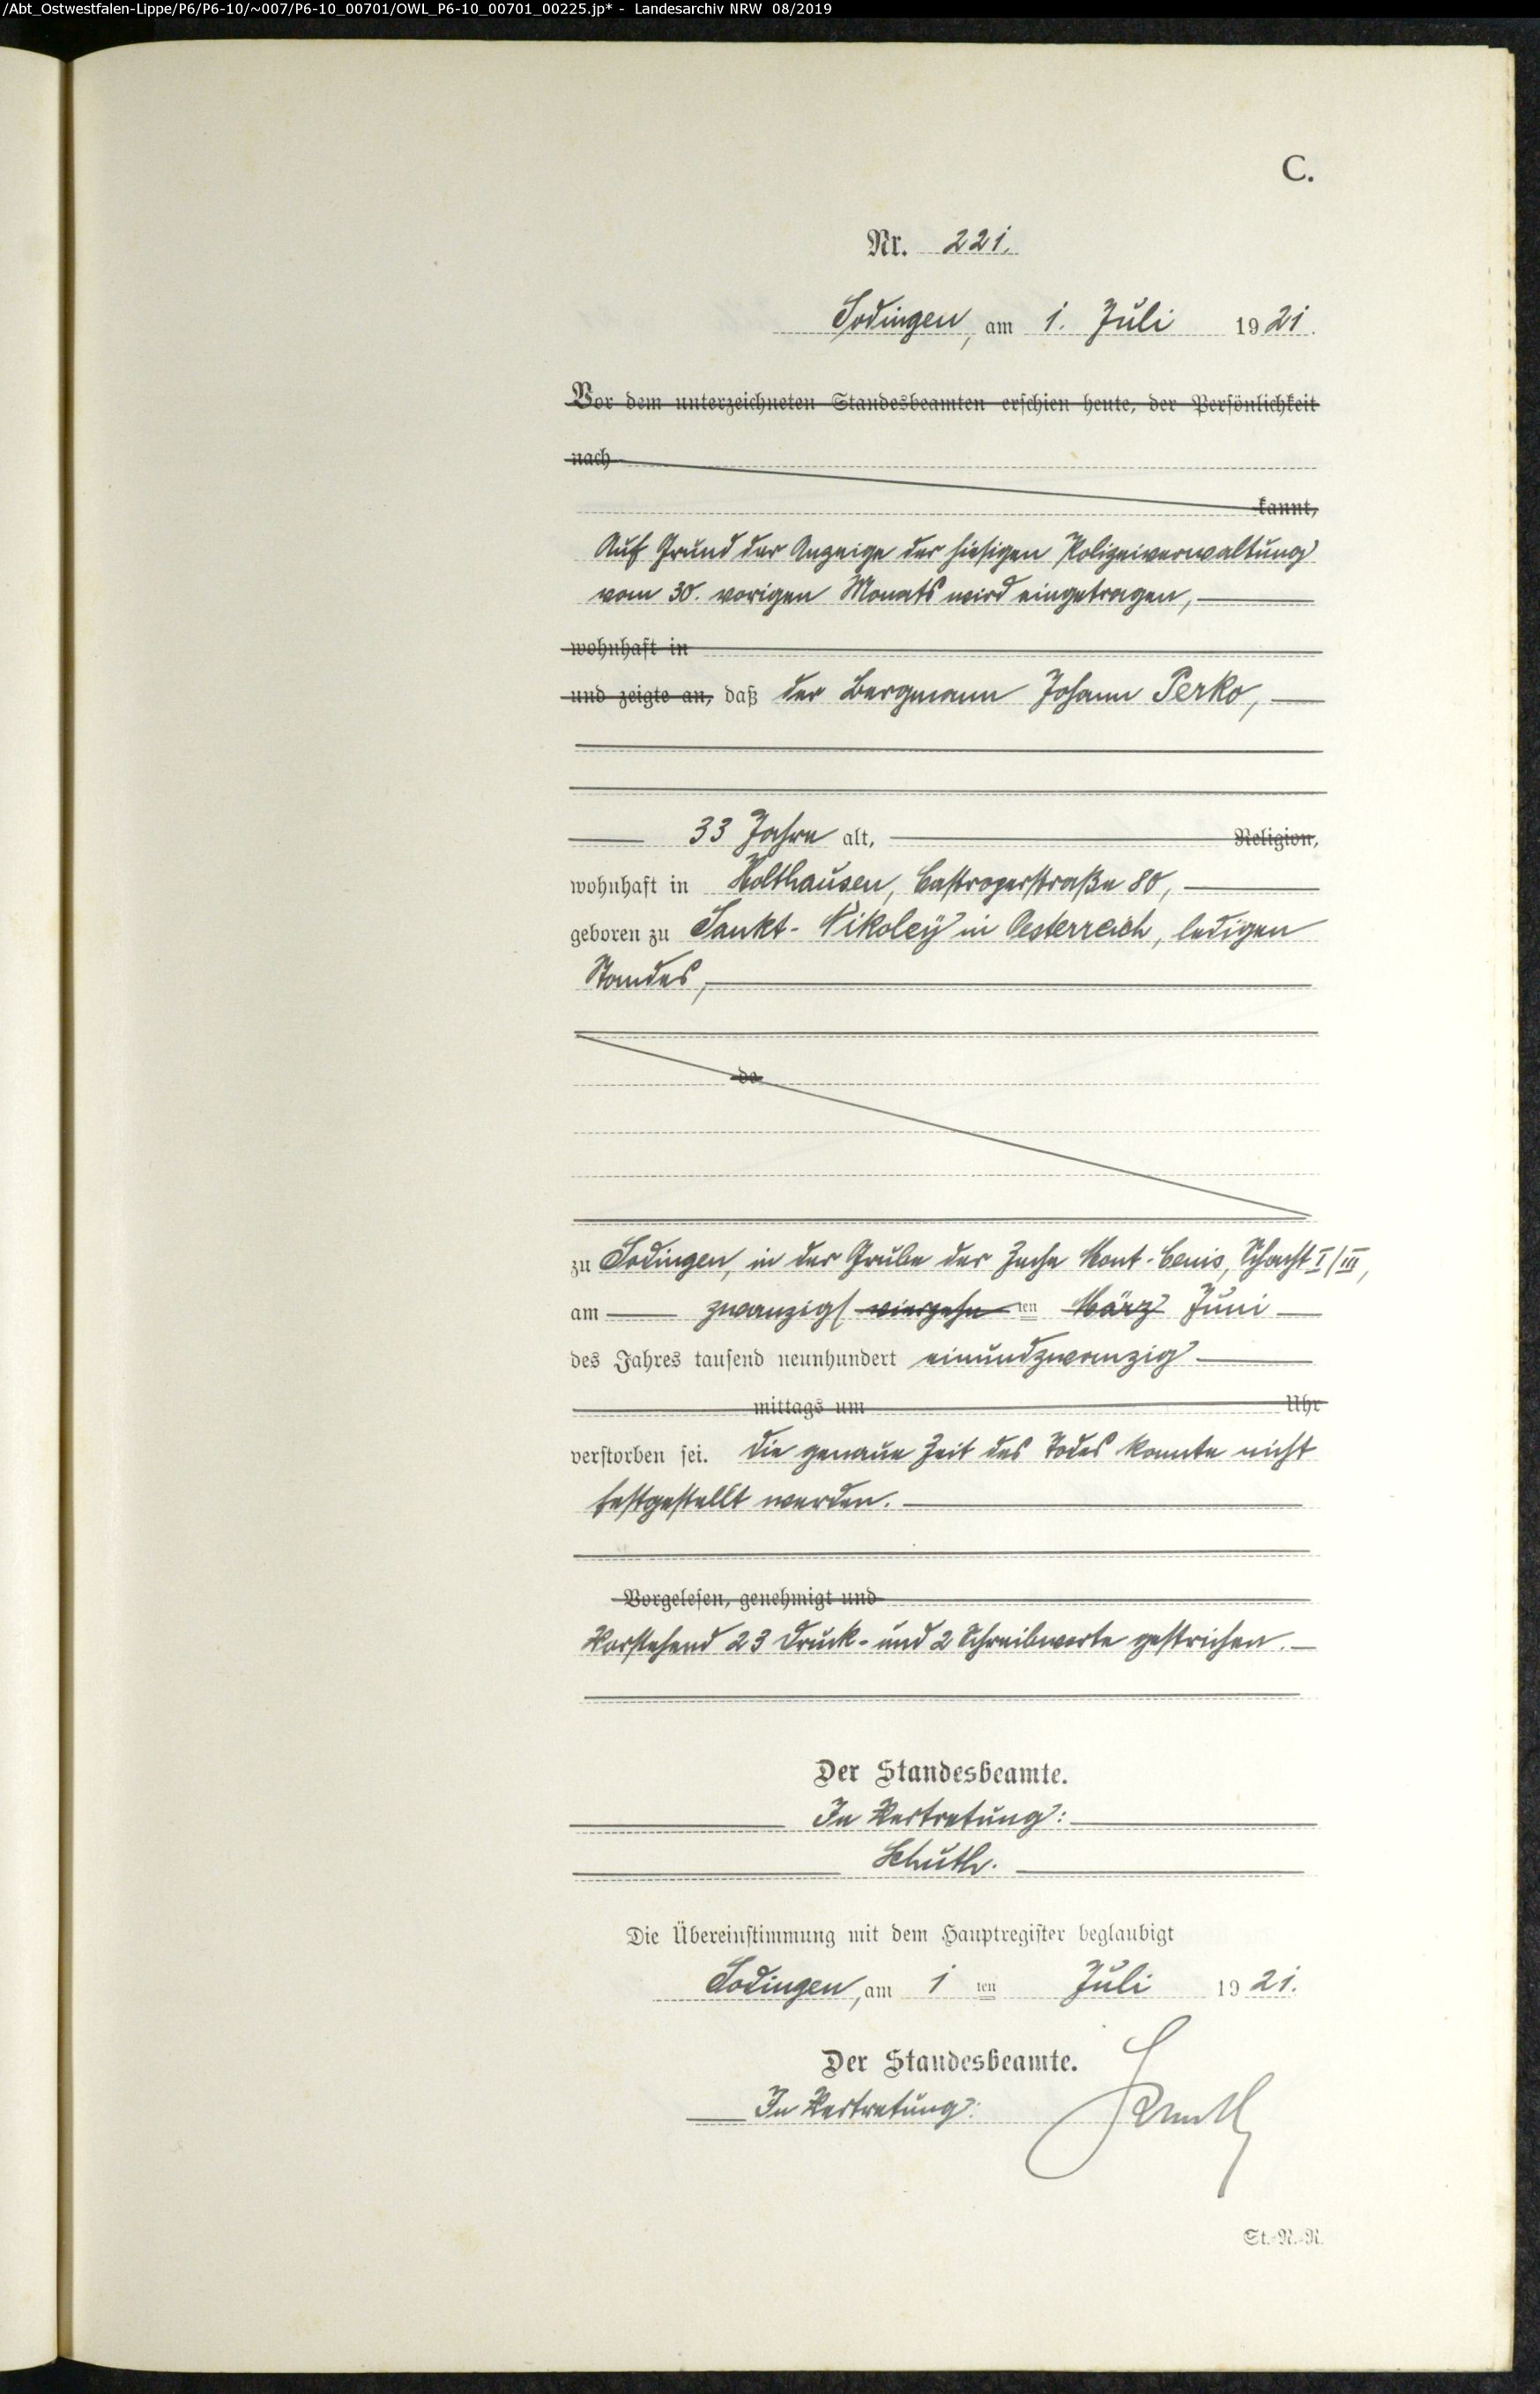 /Abt_Ostwestfalen-Lippe/P6/P6-10/~007/P6-10_00701/OWL_P6-10_00701_00225.jp* - Landesarchiv NRW 08/2019
C.
Nr. 221.
Sodingen, am 1. Juli 1921.
Vor dem unterzeichneten Standesbeamten erschien heute, der Persönlichkeit
nach
kannt,
Auf Grund der Anzeige der hiesigen Polizeiverwaltung
vom 30. vorigen Monats wird eingetragen,
wohnhaft in
und zeigte an, daß der Bergmann Johann Perko,
33 Jahre alt, Religion,
wohnhaft in Holthausen, Castroperstraße 80,
geboren zu Sankt-Nikoley in Oesterreich, ledigen
Standes,
da
zu Sodingen, in der Grube der Zeche Mont-Cenis, Schacht I/III,
am zwanzigs vierzehn ten März Juni
des Jahres tausend neunhundert einundzwanzig
mittags um Uhr
verstorben sei. Die genaue Zeit des Todes konnte nicht
festgestellt werden.
Vorgelesen, genehmigt und
Vorstehend 23 Druck- und 2 Schreibworte gestrichen.
Der Standesbeamte.
In Vertretung:
Schuth.
Die Übereinstimmung mit dem Hauptregister beglaubigt
Sodingen, am 1 ten Juli 1921.
Der Standesbeamte.
In Vertretung: Schuth
St.-N.-R.